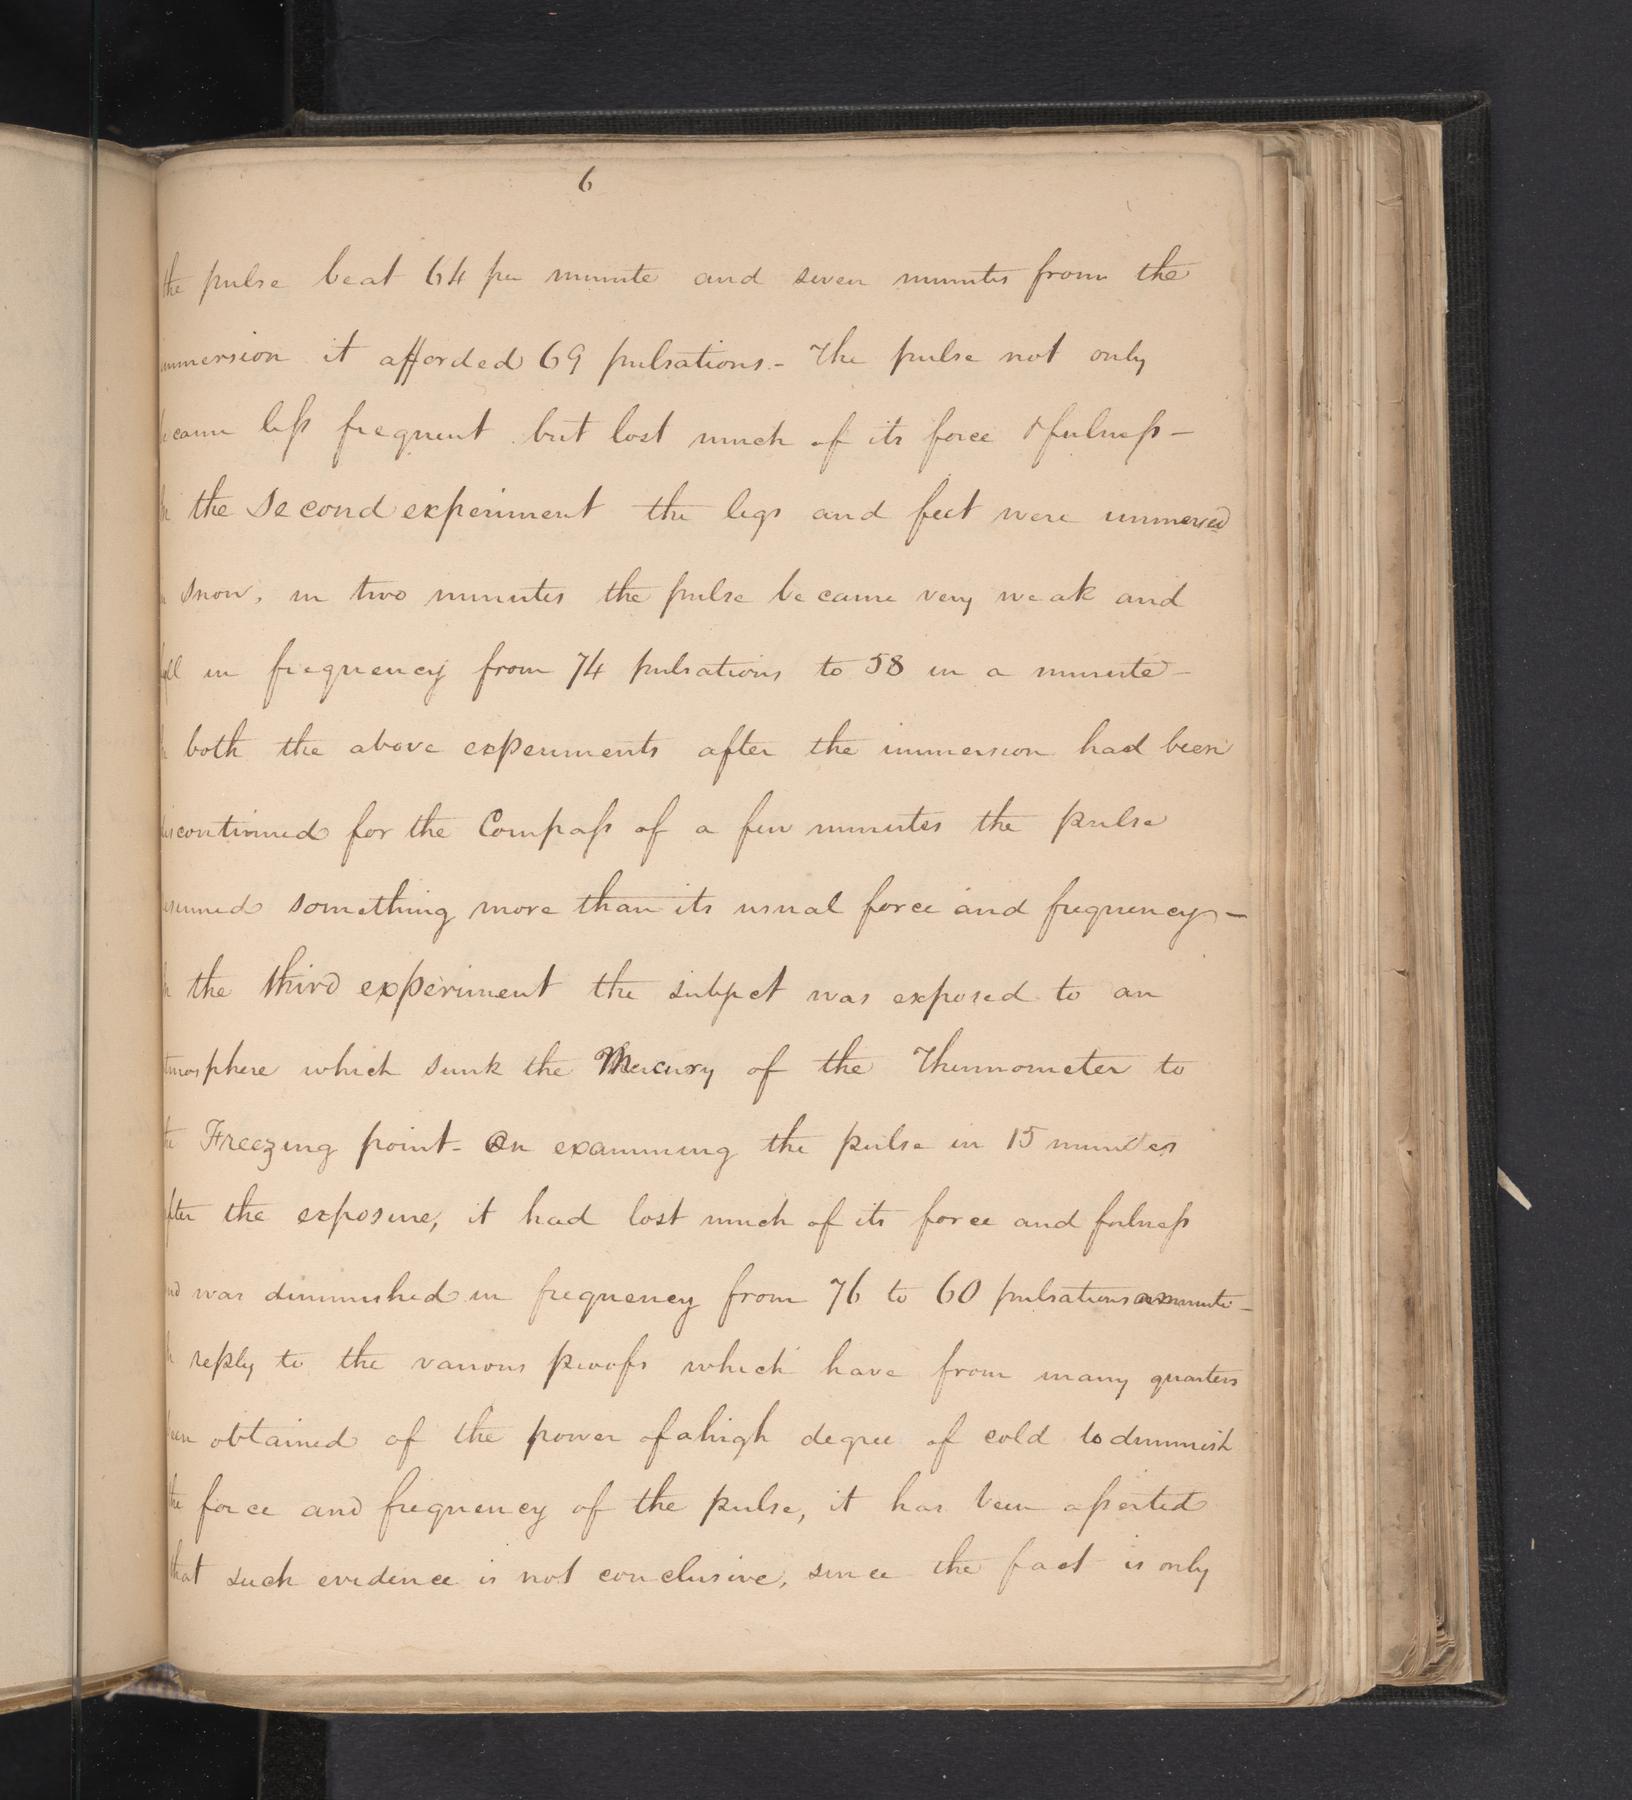 6
the pulse beat 64 per minute and seven minutes from the
immersion it afforded 69 pulsations - The pulse not only
became less frequent but lost much of its force & fulness -
In the Second experiment the legs and feet were immersed
in Snow, in two minutes the pulse became very weak and
fell in frequency from 74 pulsations to 58 in a minute -
In both the above experiments after the immersion had been
discontinued for the Compass of a few minutes the pulse
resumed something more than its usual force and frequency -
In the third experiment the subject was exposed to an
atmosphere which sunk the Mercury of the Thermometer to
the Freezing point - On examining the pulse in 15 minutes
after the exposure, it had lost much of its force and fulness
and was diminished in frequency from 76 to 60 pulsations a minute -
In reply to the various proofs which have from many quarters
been obtained of the power of a high degree of cold to diminish
the force and frequency of the pulse, it has been asserted
that such evidence is not conclusive, since the fact is only